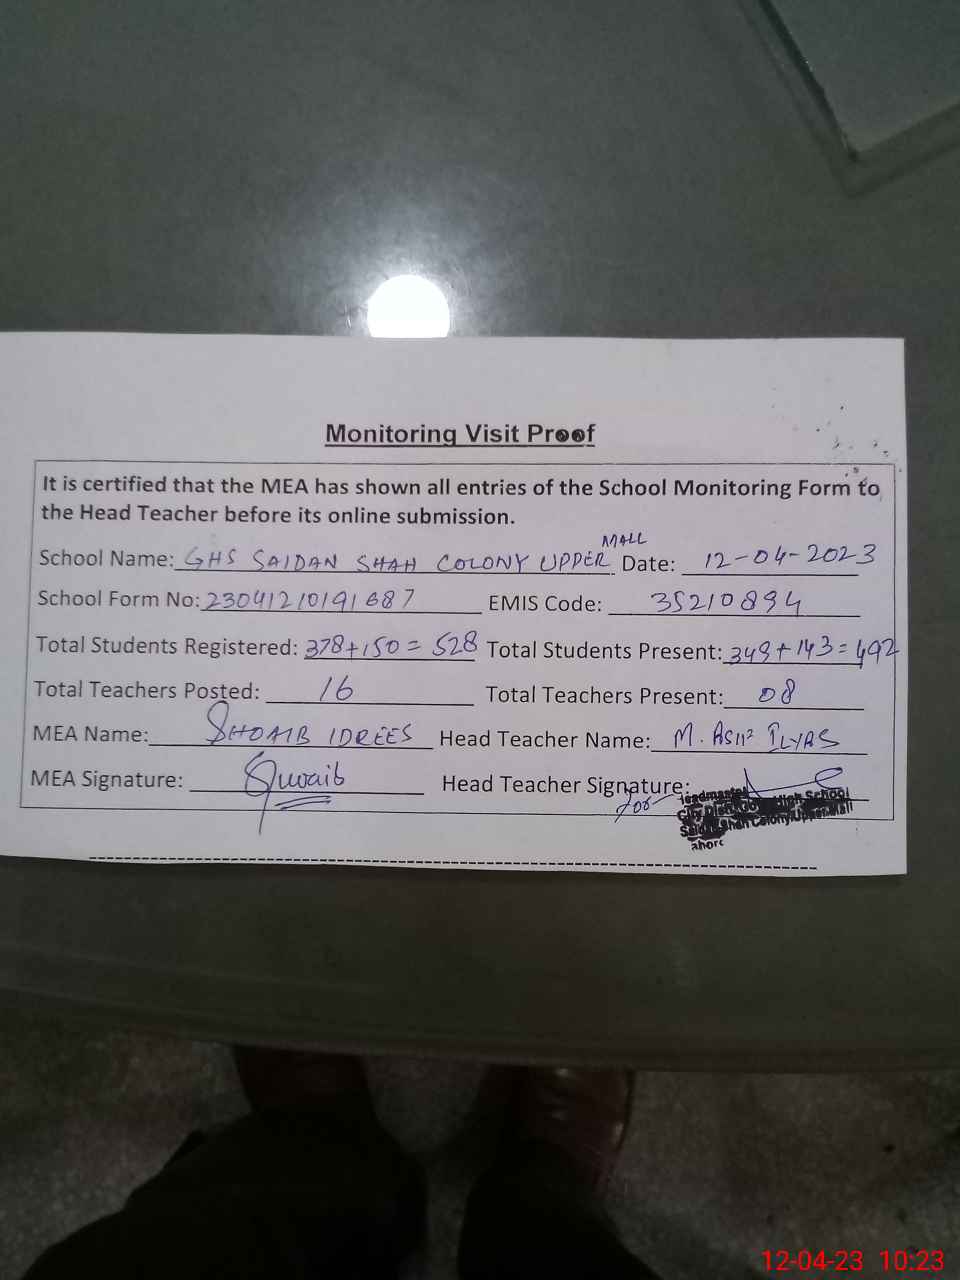 Monitoring Visit Proof
It is certified that the MEA has shown all entries of the School Monitoring Form to
the Head Teacher before its online submission.
School Name: GHS SAIDAN SHAH COLONY UPPER MALL Date: 12-04-2023
School Form No: 23041210191687 EMIS Code: 35210894
Total Students Registered: 378+150=528 Total Students Present: 349+143=492
Total Teachers Posted: 16 Total Teachers Present: 08
MEA Name: SHOAIB IDREES Head Teacher Name: M. ILYAS
MEA Signature: Head Teacher Signature:
for
Headmaster
High School
Shah Colony Upper Mall
ahore
12-04-23 10:23